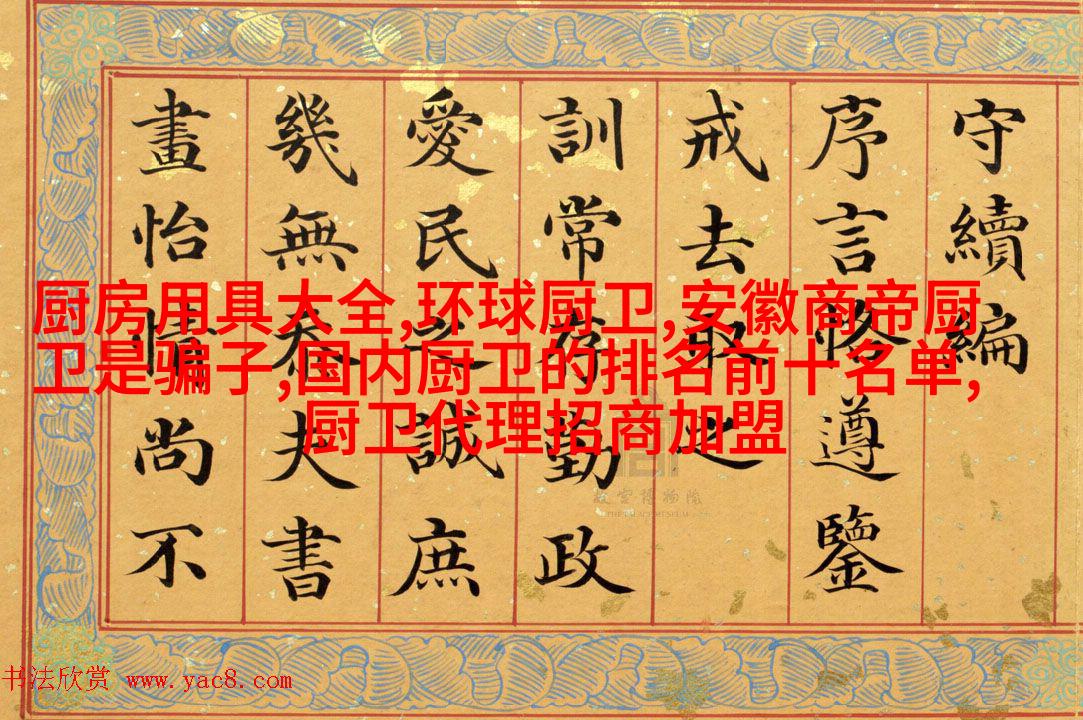 守續編
序言恪遵鑒
戒去之
訓常存勤政
愛民之誠庶
幾無忝夫書
畫怡情尚不
厨房用具大全,环球厨卫,安徽商帝厨
卫是骗子,国内厨卫的排名前十名单,
厨卫代理招商加盟
故宮博物院
THE PALACE MUSEUM
书法欣赏 www.yac8.com